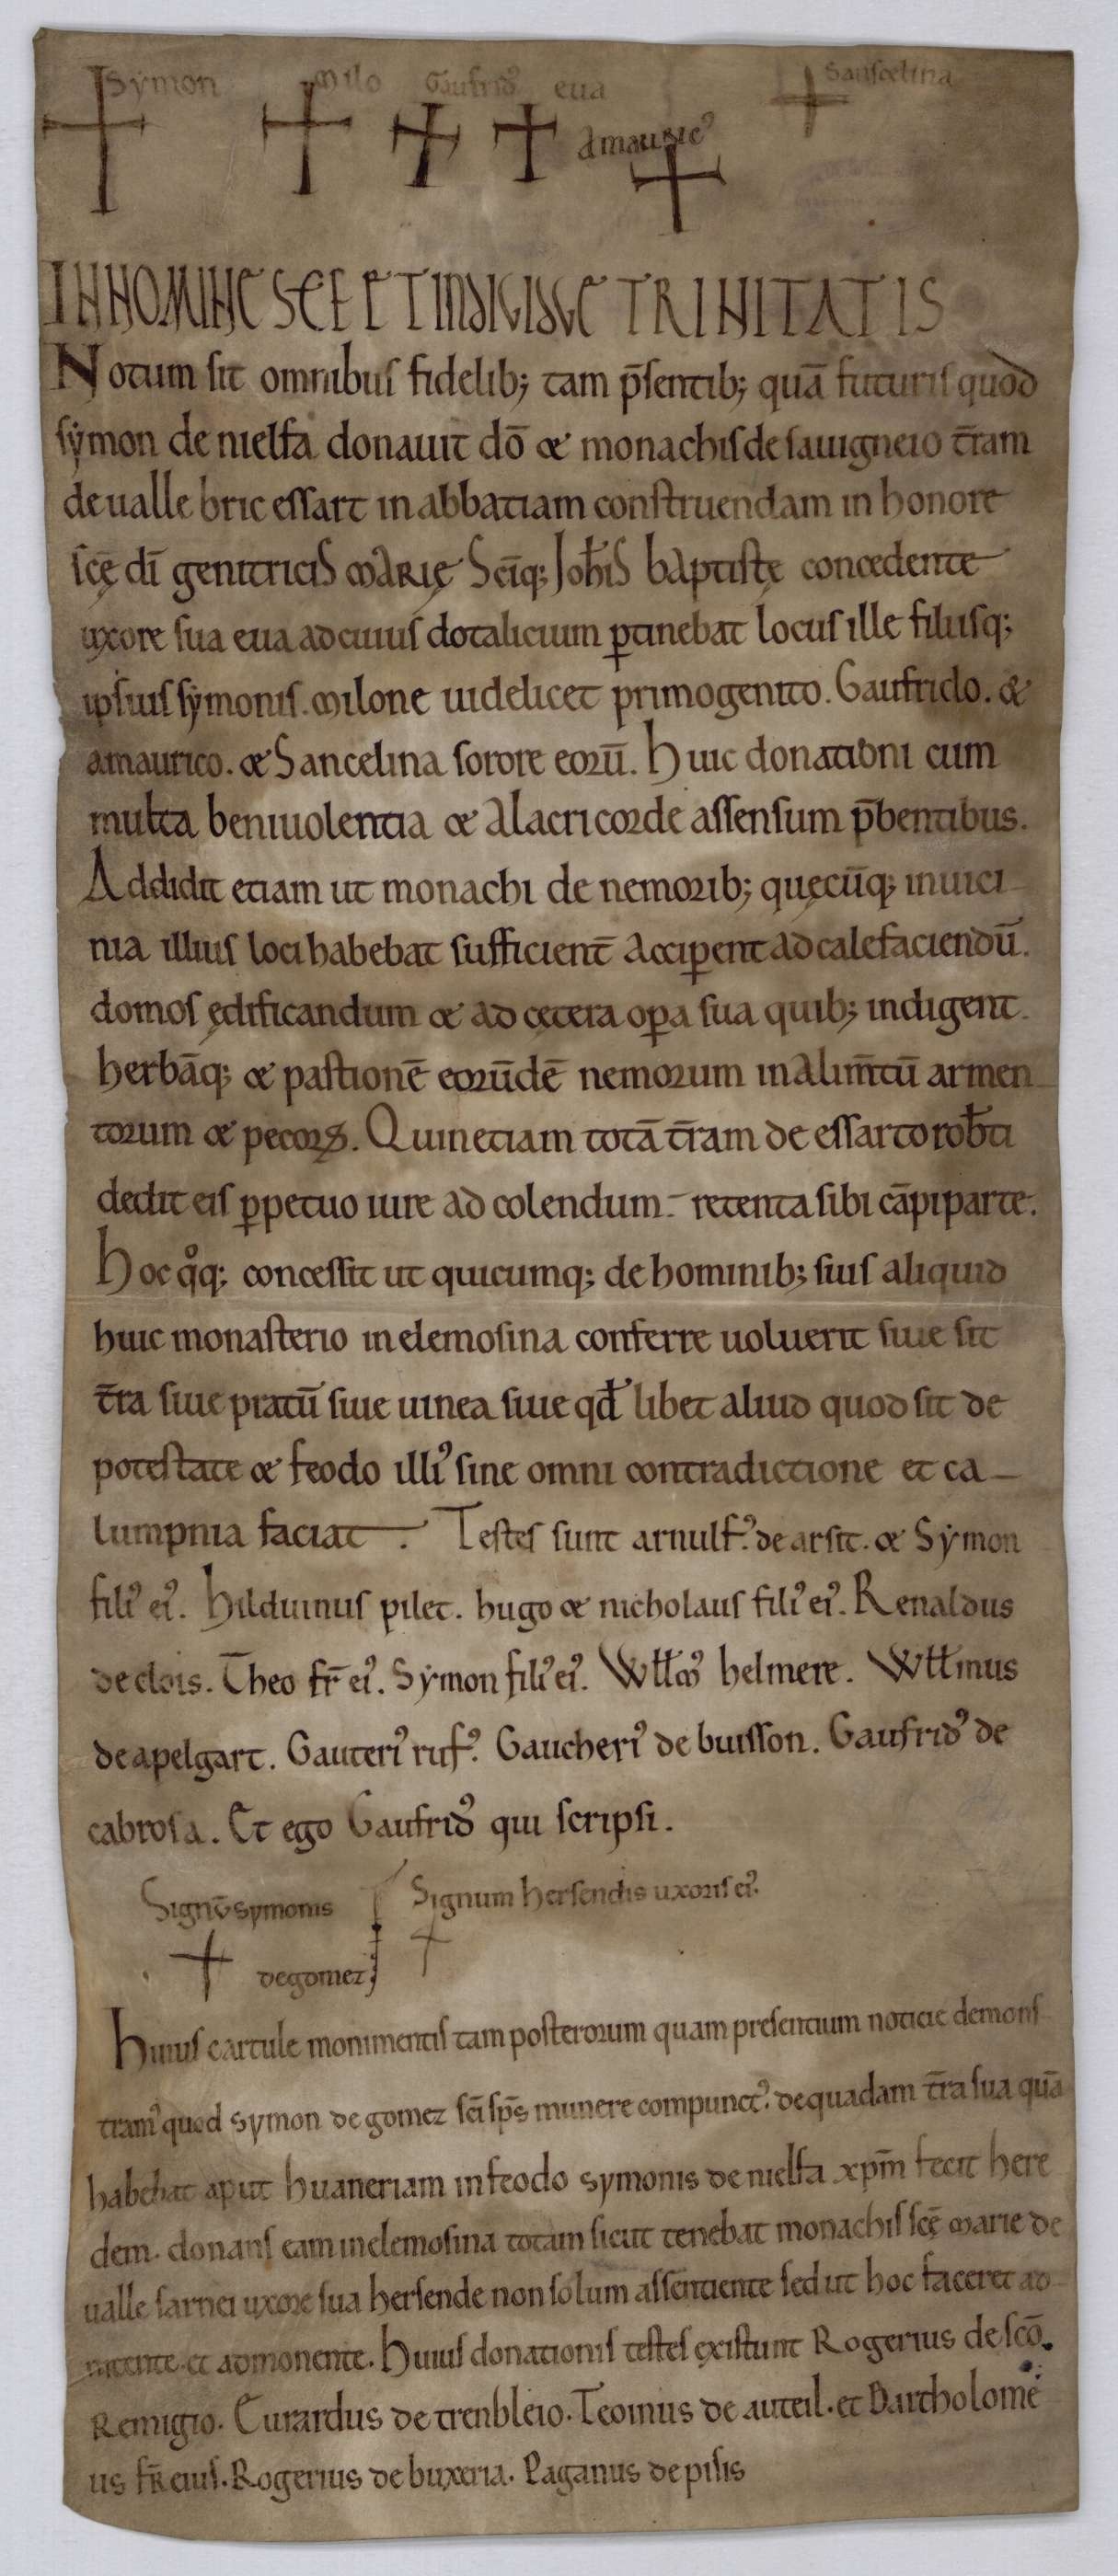 Symon Milo Gaufrid᾽ eua Sanscelina
Amauric᾽
IN NOMINE SCE ET INDIVIDVE TRINITATIS
Notum sit omnibus fidelib; tam p̄sentib; quā futuris quod
sẏmon de nielfa donauit dō & monachis de sauigneio t̄ram
de ualle bric essart in abbatiam construendam in honore
scę dī genitricis MARIę Scīq; Joħis bAptistę concedente
uxore sua eua ad cuius dotalicium ꝑtinebat locus ille filiisq;
ipsius sẏmonis. Milone uidelicet primogenito. Gaufrido. &
amaurico. & Sancelina sorore eorū. Huic donationi cum
multa beniuolentia & alacri corde assensum p̄bentibus.
Addidit etiam ut monachi de nemorib; quęcūq; in uici
nia illius loci habebat sufficient̄ acciꝑent ad calefaciendū.
domos ędificandum & ad cętera oꝑa sua quib; indigent.
herbāq; & pastionē eorūdē nemorum in alim̄tū armen
torum & pecorꝝ. Quin etiam totā t̄ram de essarto robt̄i
dedit eis ꝑpetuo iure ad colendum. retenta sibi cāpi parte.
Hoc qͦq; concessit ut quicumq; de hominib; suis aliquid
huic monasterio in elemosina conferre uoluerit siue sit
t̄ra siue pratū siue uinea siue qđ libet aliud quod sit de
potestate & feodo illi᾽ sine omni contradictione et ca
lumpnia faciat. Testes sunt arnulf᾽. de arsit. & Sẏmon
fili᾽ ei᾽. Hilduinus pilet. hugo & nicholaus fili᾽ ei᾽. Renaldus
de clois. Theo fr̄ ei᾽. Sẏmon fili᾽ ei᾽. Włłm᾽ helmere. Włłmus
de apelgart. Gauteri᾽ ruf᾽. Gaucheri᾽ de buisson. Gaufrid᾽ de
cabrosa. Et ego Gaufrid᾽ qui scripsi.
Signū symonis Signum hersendis uxoris ei᾽.
de gomez
Huius cartule monimentis tam posterorum quam presentium noticie demons
tram᾽ quod symon de gomez sc̄i sp̄s munere compunct᾽. de quadam t̄ra sua quā
habebat aput huaneriam in feodo symonis de nielfa xp̄m fecit here
dem. donans eam in elemosina totam sicut tenebat monachis scę marie de
ualle sarnei uxore sua hersende non solum assentiente sed ut hoc faceret ad
nitente. et admonente. Huius donationis testes existunt Rogerius de scō.
Remigio. Eurardus de trenbleio. Teoinus de auteil. et Bartholome
us fr̄ eius. Rogerius de buxeria. Paganus de pisis